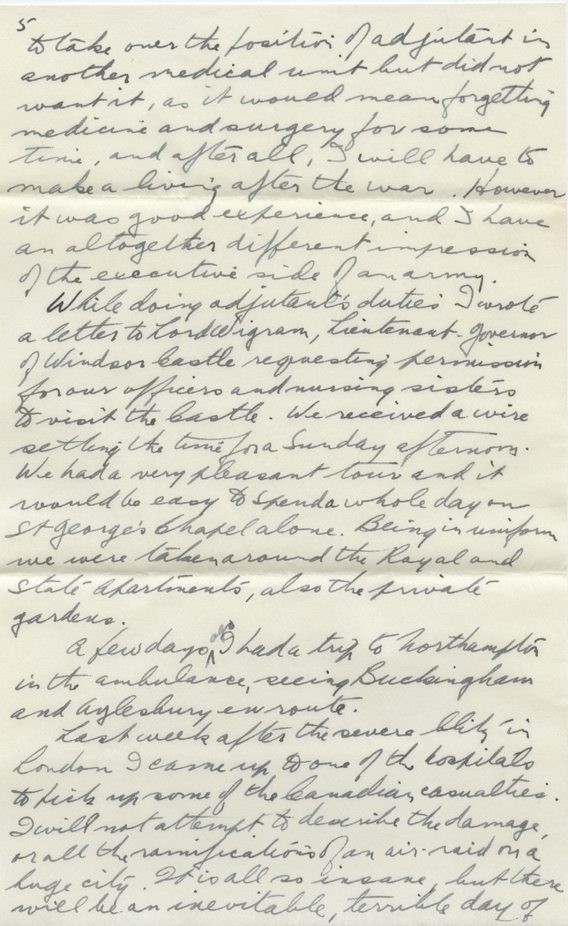 5
to take over the position of adjutant in
another medical unit but did not
want it, as it would mean forgetting
medicine and surgery for some
time, and after all, I will have to
make a living after the war. However
it was good experience, and I have
an altogether different impression
of the executive side of an army.
While doing adjutant's duties I wrote
a letter to Lord Wigram, Lieutenant-Governor
of Windsor Castle requesting permission
for our officers and nursing sisters
to visit the Castle. We received a wire
setting the time for a Sunday afternoon.
We had a very pleasant tour and it
would be easy to spend a whole day on
St George's Chapel alone. Being in uniform
we were taken around the Royal and
State Apartments, also the private
gardens.
A few days I had a trip to Northampton
in the ambulance, seeing Buckingham
and Aylesbury en route.
Last week after the severe blitz in
London I came up to one of the hospitals
to pick up some of the Canadian casualties.
I will not attempt to describe the damage,
or all the ramifications of an air-raid on a
huge city. It is all so insane, but there
will be an inevitable, terrible day of